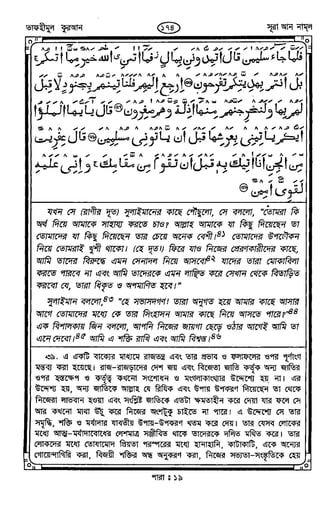 তাফহীমুল কুরআন ১৭৪ সূরা আন নামল
فَلَمَّا جَاءَ سُلَيْمٰنَ قَالَ اَتُمِدُّوْنَنِ بِمَالٍ فَمَا اٰتٰىنِۦَ اللهُ خَيْرٌ مِّمَّا اٰتٰىكُمْ ۚ
بَلْ اَنْتُمْ بِهَدِيَّتِكُمْ تَفْرَحُوْنَ ۝ اِرْجِعْ اِلَيْهِمْ فَلَنَاْتِيَنَّهُمْ بِجُنُوْدٍ لَّا قِبَلَ
لَهُمْ بِهَا وَلَنُخْرِجَنَّهُمْ مِّنْهَا اَذِلَّةً وَّهُمْ صٰغِرُوْنَ ۝ قَالَ يٰاَيُّهَا الْمَلَؤُا
اَيُّكُمْ يَاْتِيْنِيْ بِعَرْشِهَا قَبْلَ اَنْ يَّاْتُوْنِيْ مُسْلِمِيْنَ ۝ قَالَ عِفْرِيْتٌ
مِّنَ الْجِنِّ اَنَا اٰتِيْكَ بِهٖ قَبْلَ اَنْ تَقُوْمَ مِنْ مَّقَامِكَ ۚ وَاِنِّيْ عَلَيْهِ
لَقَوِيٌّ اَمِيْنٌ ۝
যখন সে (রাণীর দূত) সুলাইমানের কাছে পৌঁছুলো, সে বললো, "তোমরা কি
অর্থ দিয়ে আমাকে সাহায্য করতে চাও? আল্লাহ আমাকে যা কিছু দিয়েছেন তা
তোমাদের যা কিছু দিয়েছেন তার চেয়ে অনেক বেশী।৪১ তোমাদের উপঢৌকন
নিয়ে তোমরাই খুশী থাকো। (হে দূত!) ফিরে যাও নিজের প্রেরণকারীদের কাছে,
আমি তাদের বিরুদ্ধে এমন সেনাদল নিয়ে আসবো৪২ যাদের তারা মোকাবিলা
করতে পারবে না এবং আমি তাদেরকে এমন লাঞ্ছিত করে সেখান থেকে বিতাড়িত
করবো যে, তারা ধিকৃত ও অপমাণিত হবে।"
সুলাইমান বললো,৪৩ "হে সভাসদগণ! তারা অনুগত হয়ে আমার কাছে আসার
আগে তোমাদের মধ্যে কে তার সিংহাসন আমার কাছে নিয়ে আসতে পারে?"৪৪
এক বিশালকায় জিন বললো, আপনি নিজের জায়গা ছেড়ে ওঠার আগেই আমি তা
এনে দেবো।৪৫ আমি এ শক্তি রাখি এবং আমি বিশ্বস্ত।৪৬
৩৯. এ একটি বাক্যের মাধ্যমে রাজতন্ত্র এবং তার প্রভাব ও ফলাফলের ওপর পূর্ণাংগ
মন্তব্য করা হয়েছে। রাজ-রাজড়াদের দেশ জয় এবং বিজেতা জাতি কর্তৃক অন্য জাতির
ওপর হস্তক্ষেপ ও কর্তৃত্ব কখনো সংশোধন ও মংগলাকাংখার উদ্দেশ্যে হয় না। এর
উদ্দেশ্য হয়, অন্য জাতিকে আল্লাহ যে রিযিক এবং উপায় উপকরণ দিয়েছেন তা থেকে
নিজেরা লাভবান হওয়া এবং সংশ্লিষ্ট জাতিকে এতটা ক্ষমতাহীন করে দেয়া যার ফলে সে
আর কখনো মাথা উঁচু করে নিজের অংশটুকু চাইতে না পারে। এ উদ্দেশ্যে সে তার
সমৃদ্ধি, শক্তি ও মর্যাদার যাবতীয় উপায়-উপকরণ খতম করে দেয়। তার যেসব লোকের
মধ্যে আত্ম-মর্যাদাবোধের লেশমাত্র সঞ্জীবিত থাকে তাদেরকে দলিত মথিত করে। তার
লোকদের মধ্যে তোষামোদ প্রিয়তা পরস্পরের মধ্যে হানাহানি, কাটাকাটি, একে অন্যের
গোয়েন্দাগিরি করা, বিজয়ী শক্তির অন্ধ অনুকরণ করা, নিজের সভ্যতা-সংস্কৃতিকে হেয়
পারা : ১৯